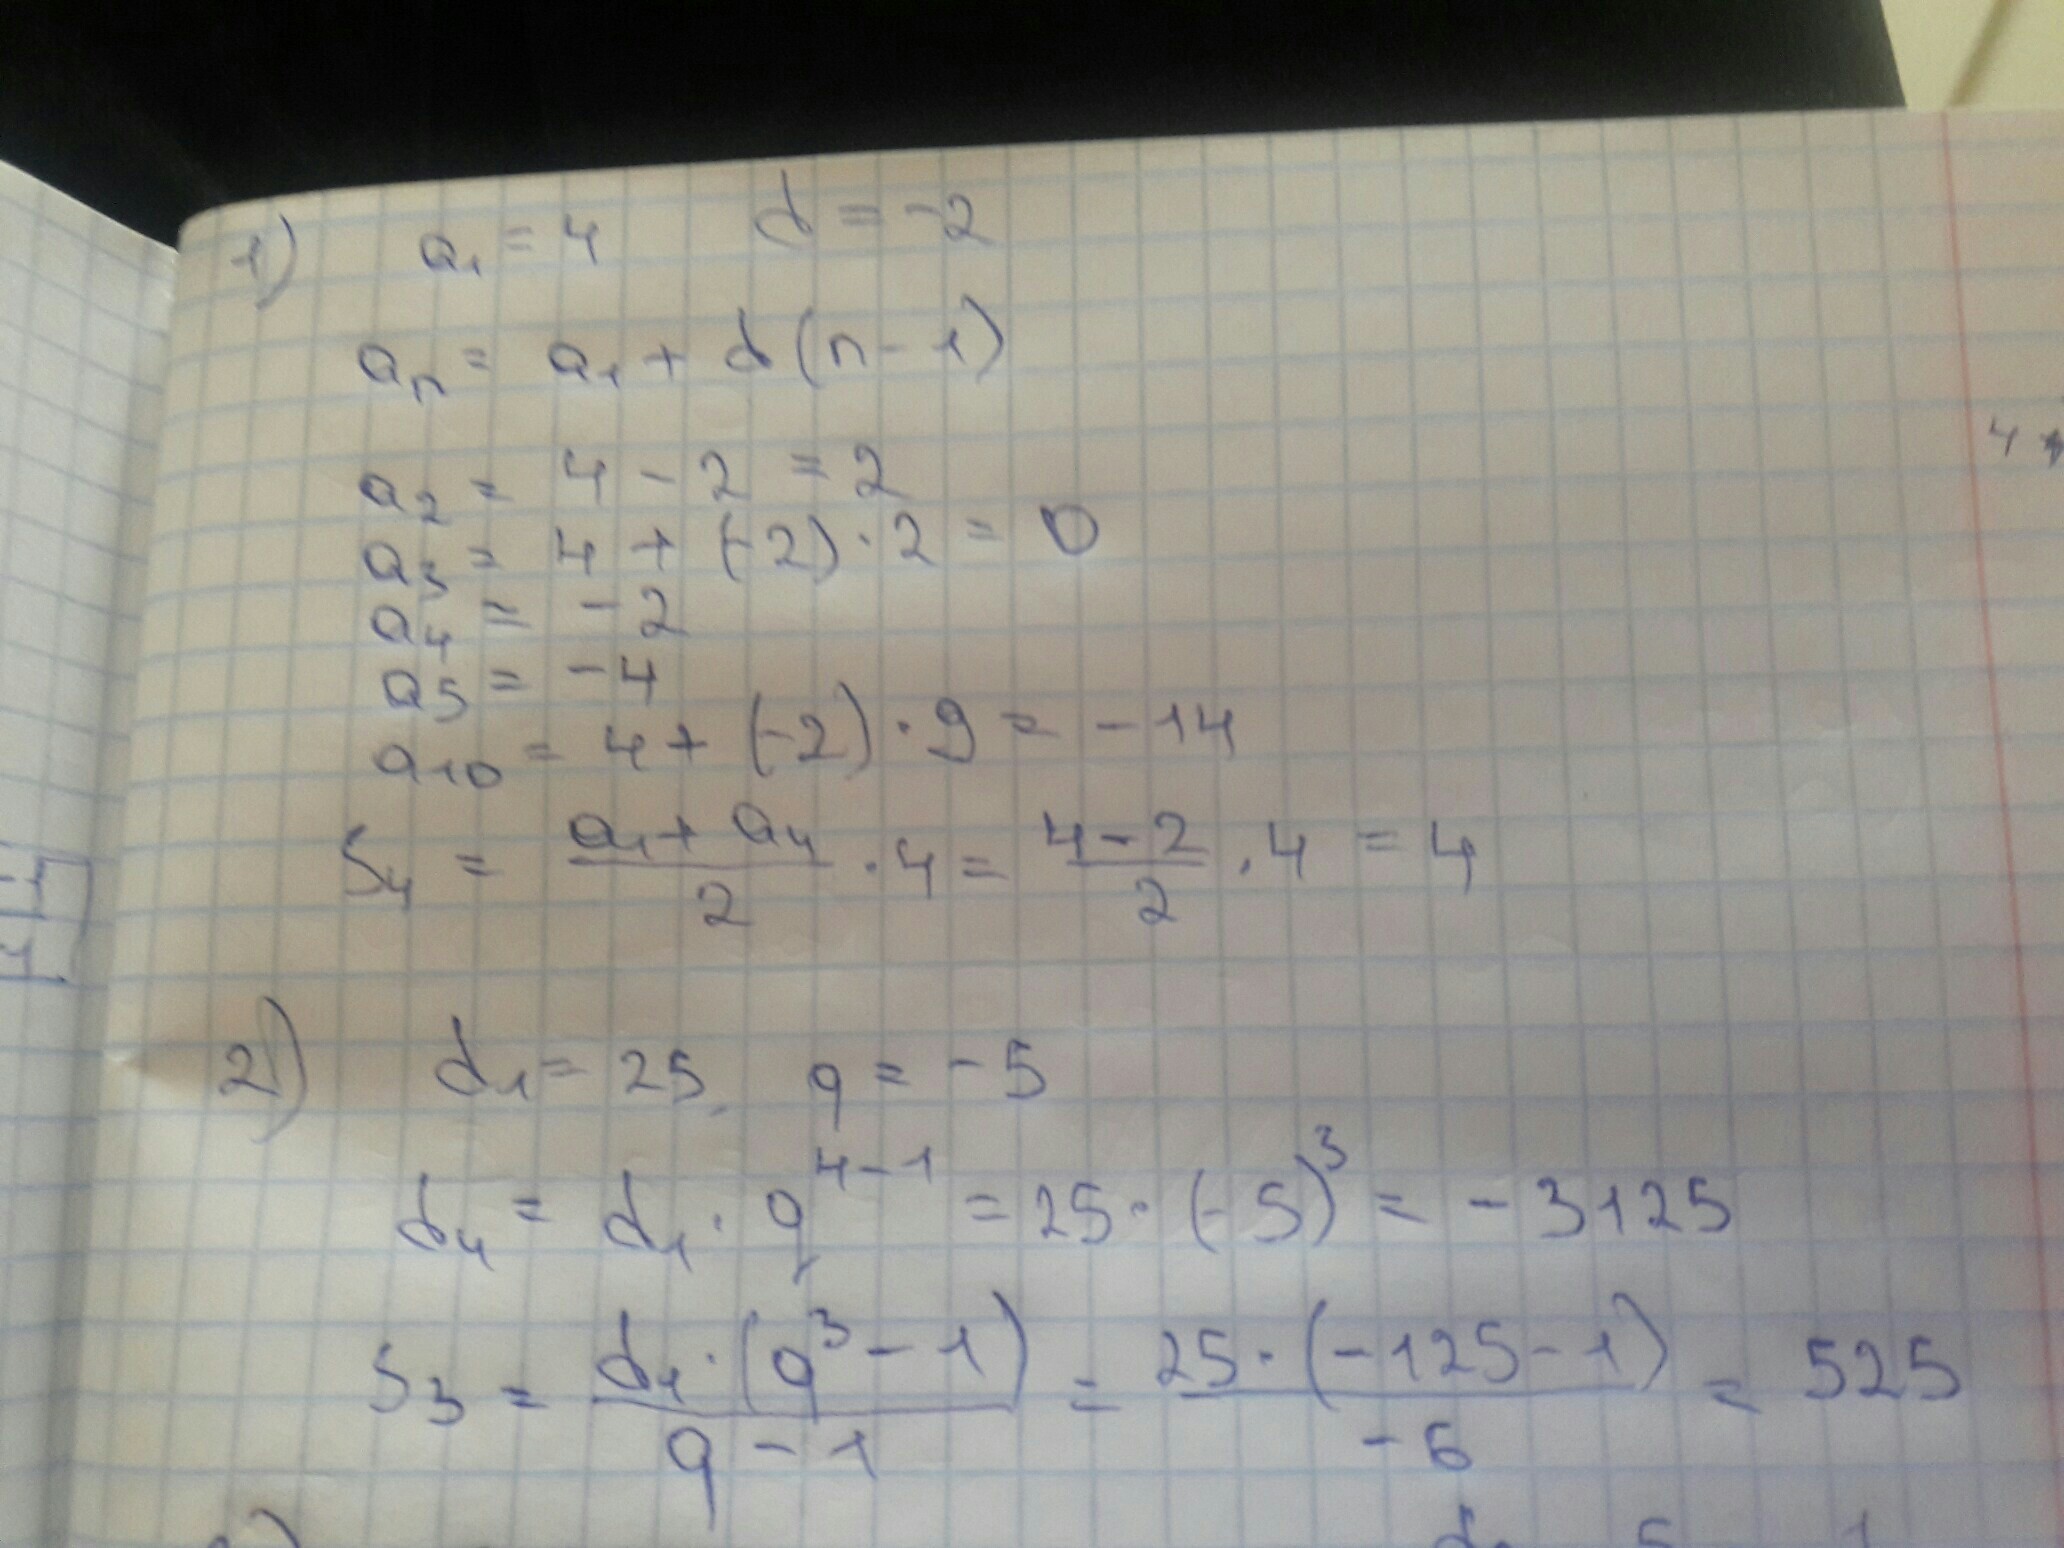 1) a₁ = 4 d = -2
aₙ = a₁ + d(n - 1)
4
a₂ = 4 - 2 = 2
a₃ = 4 + (-2) · 2 = 0
a₄ = -2
a₅ = -4
a₁₀ = 4 + (-2) · 9 = -14
S₄ = (a₁ + a₄)/2 · 4 = (4 - 2)/2 · 4 = 4
2) b₁ = 25, q = -5
b₄ = b₁ · q⁴⁻¹ = 25 · (-5)³ = -3125
S₃ = (b₁ · (q³ - 1))/(q - 1) = (25 · (-125 - 1))/(-6) = 525